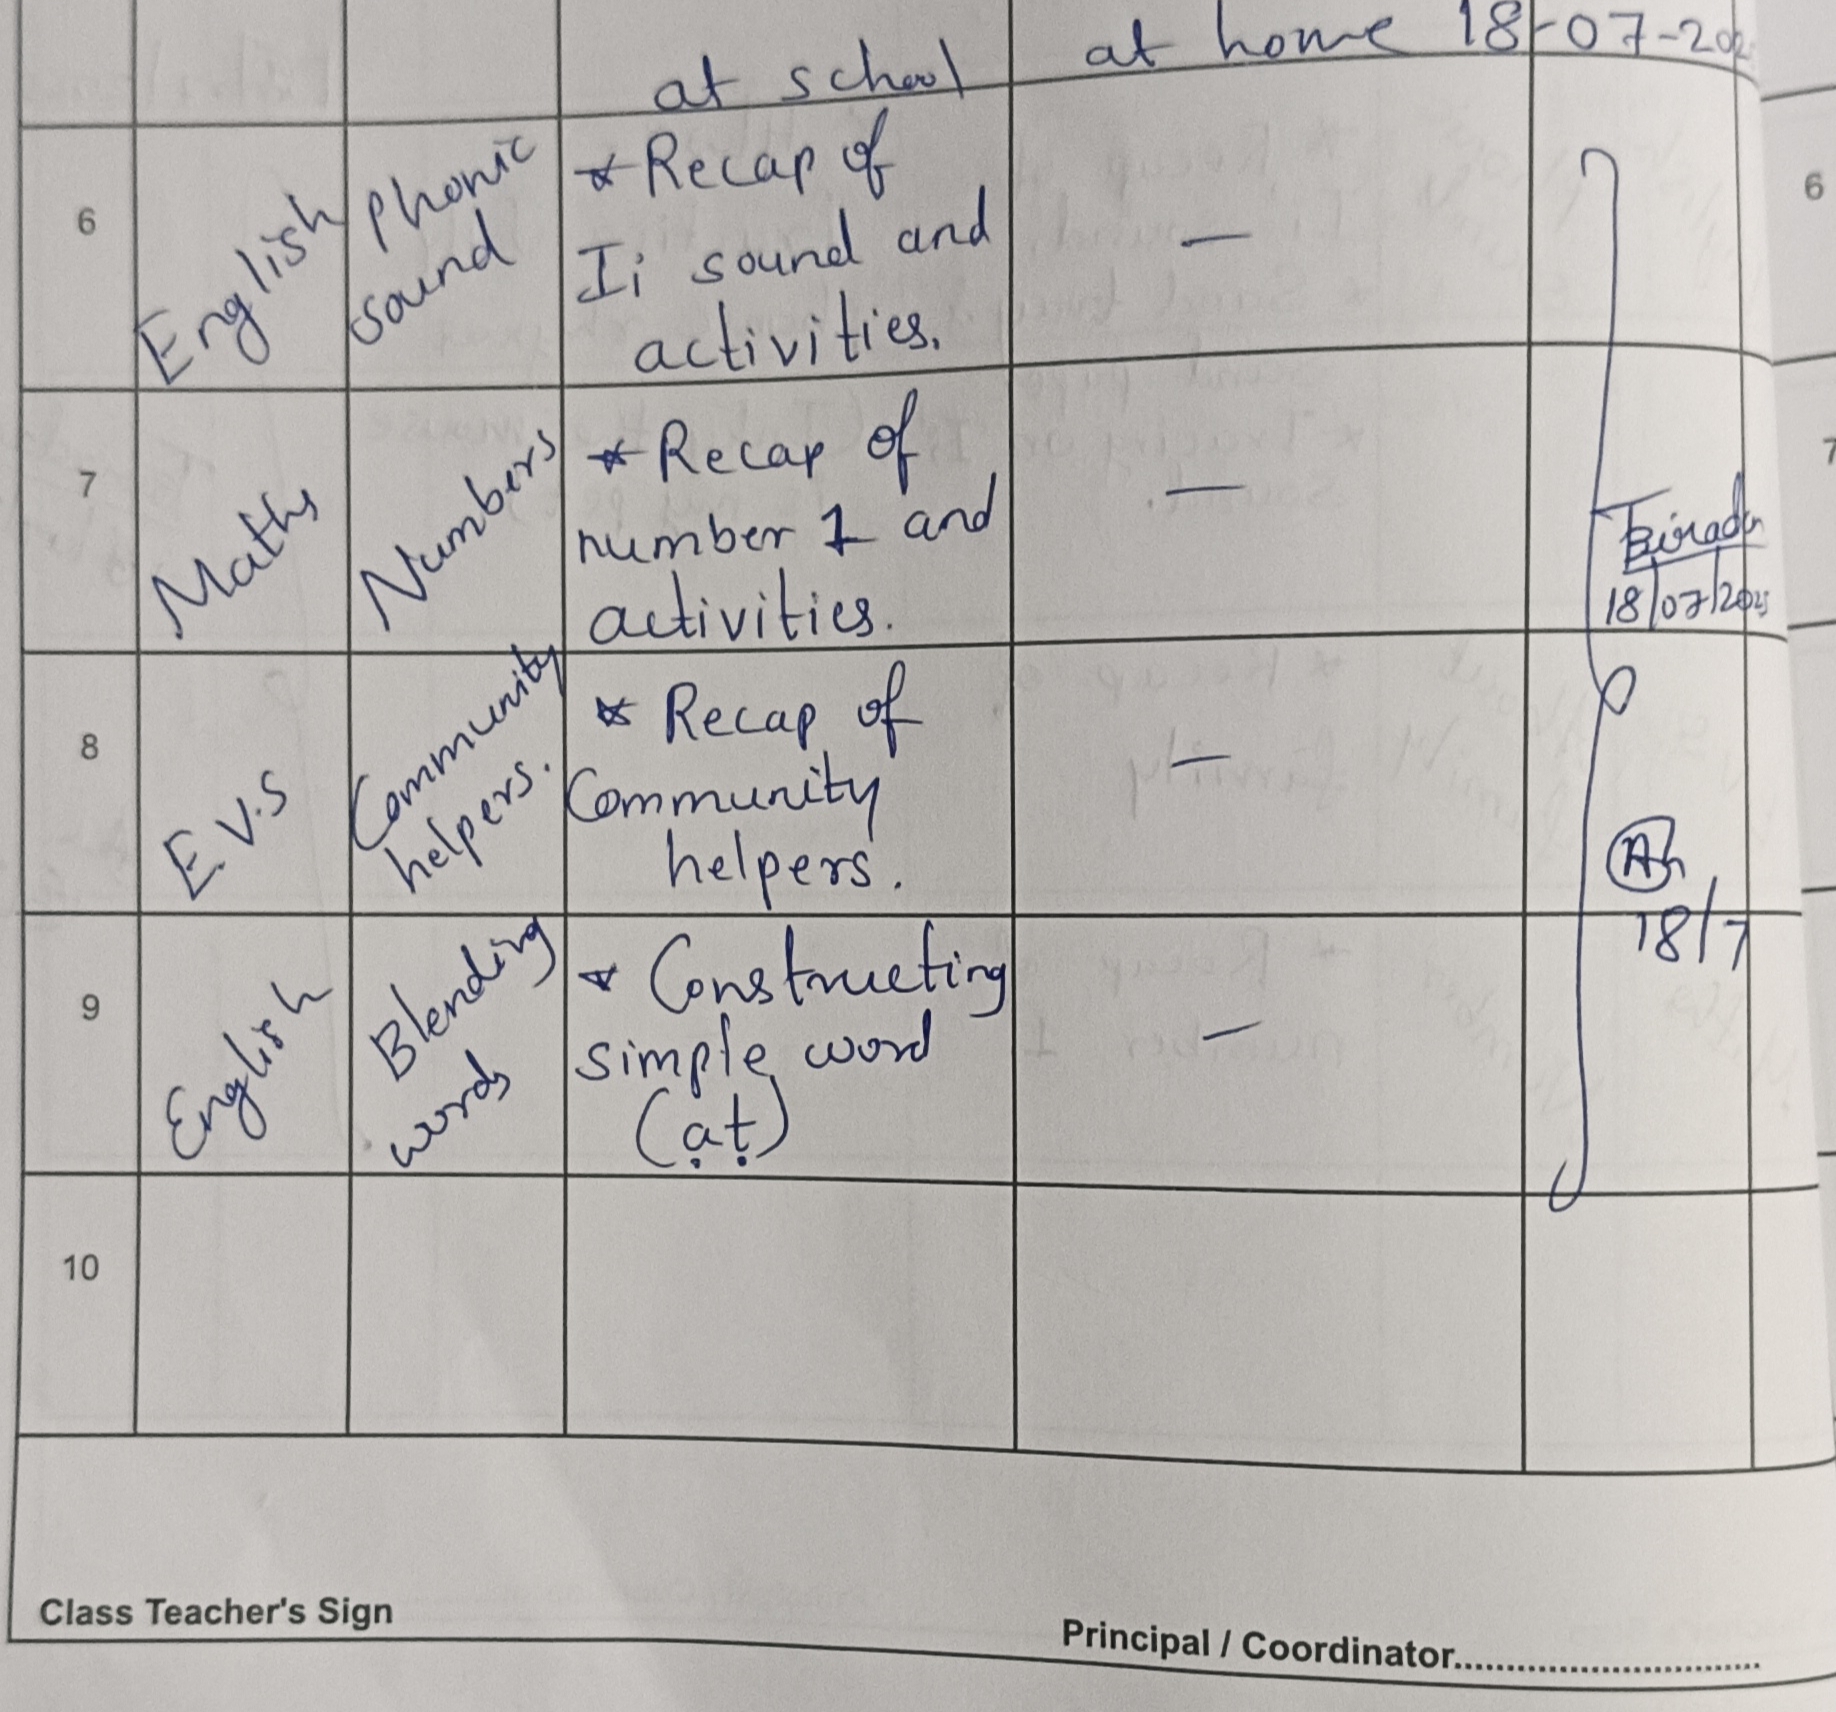 at school
at home 18-07-202
6
English
Phonic
sound
* Recap of
Ii sound and
activities.
—
6
7
Maths
Numbers
* Recap of
number 1 and
activities.
—
18/07/2025
7
8
E.V.S
Community
helpers.
* Recap of
Community
helpers.
—
18/7
9
English
Blending
words
* Constructing
simple word
(at)
—
10
Class Teacher's Sign
Principal / Coordinator..............................